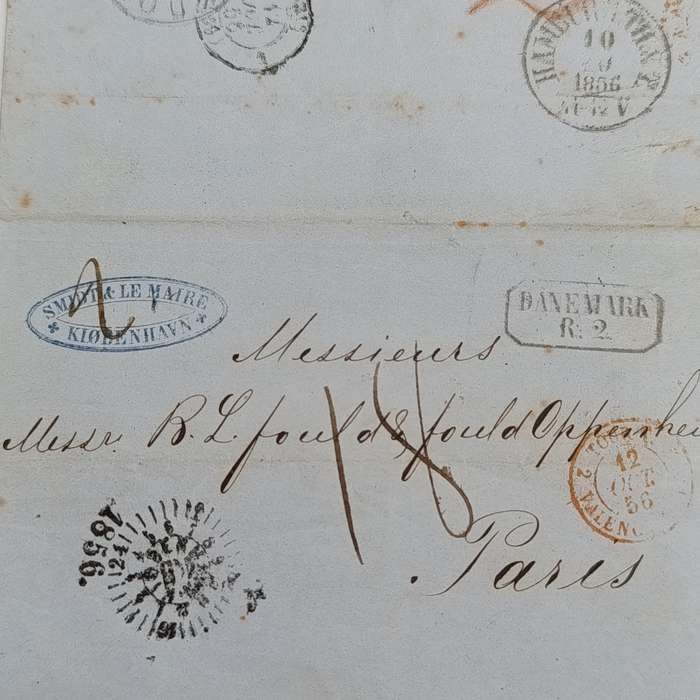 HAMBURG TH.& T.
10
10
1856
11-12 V
2
SMIDT & LE MAIRE
KIØBENHAVN
DANEMARK
R. 2
Messieurs
Messr. B. L. fould & fould Oppenhei
18
12
OCT.
56
2 VALENC
Paris
1856
24